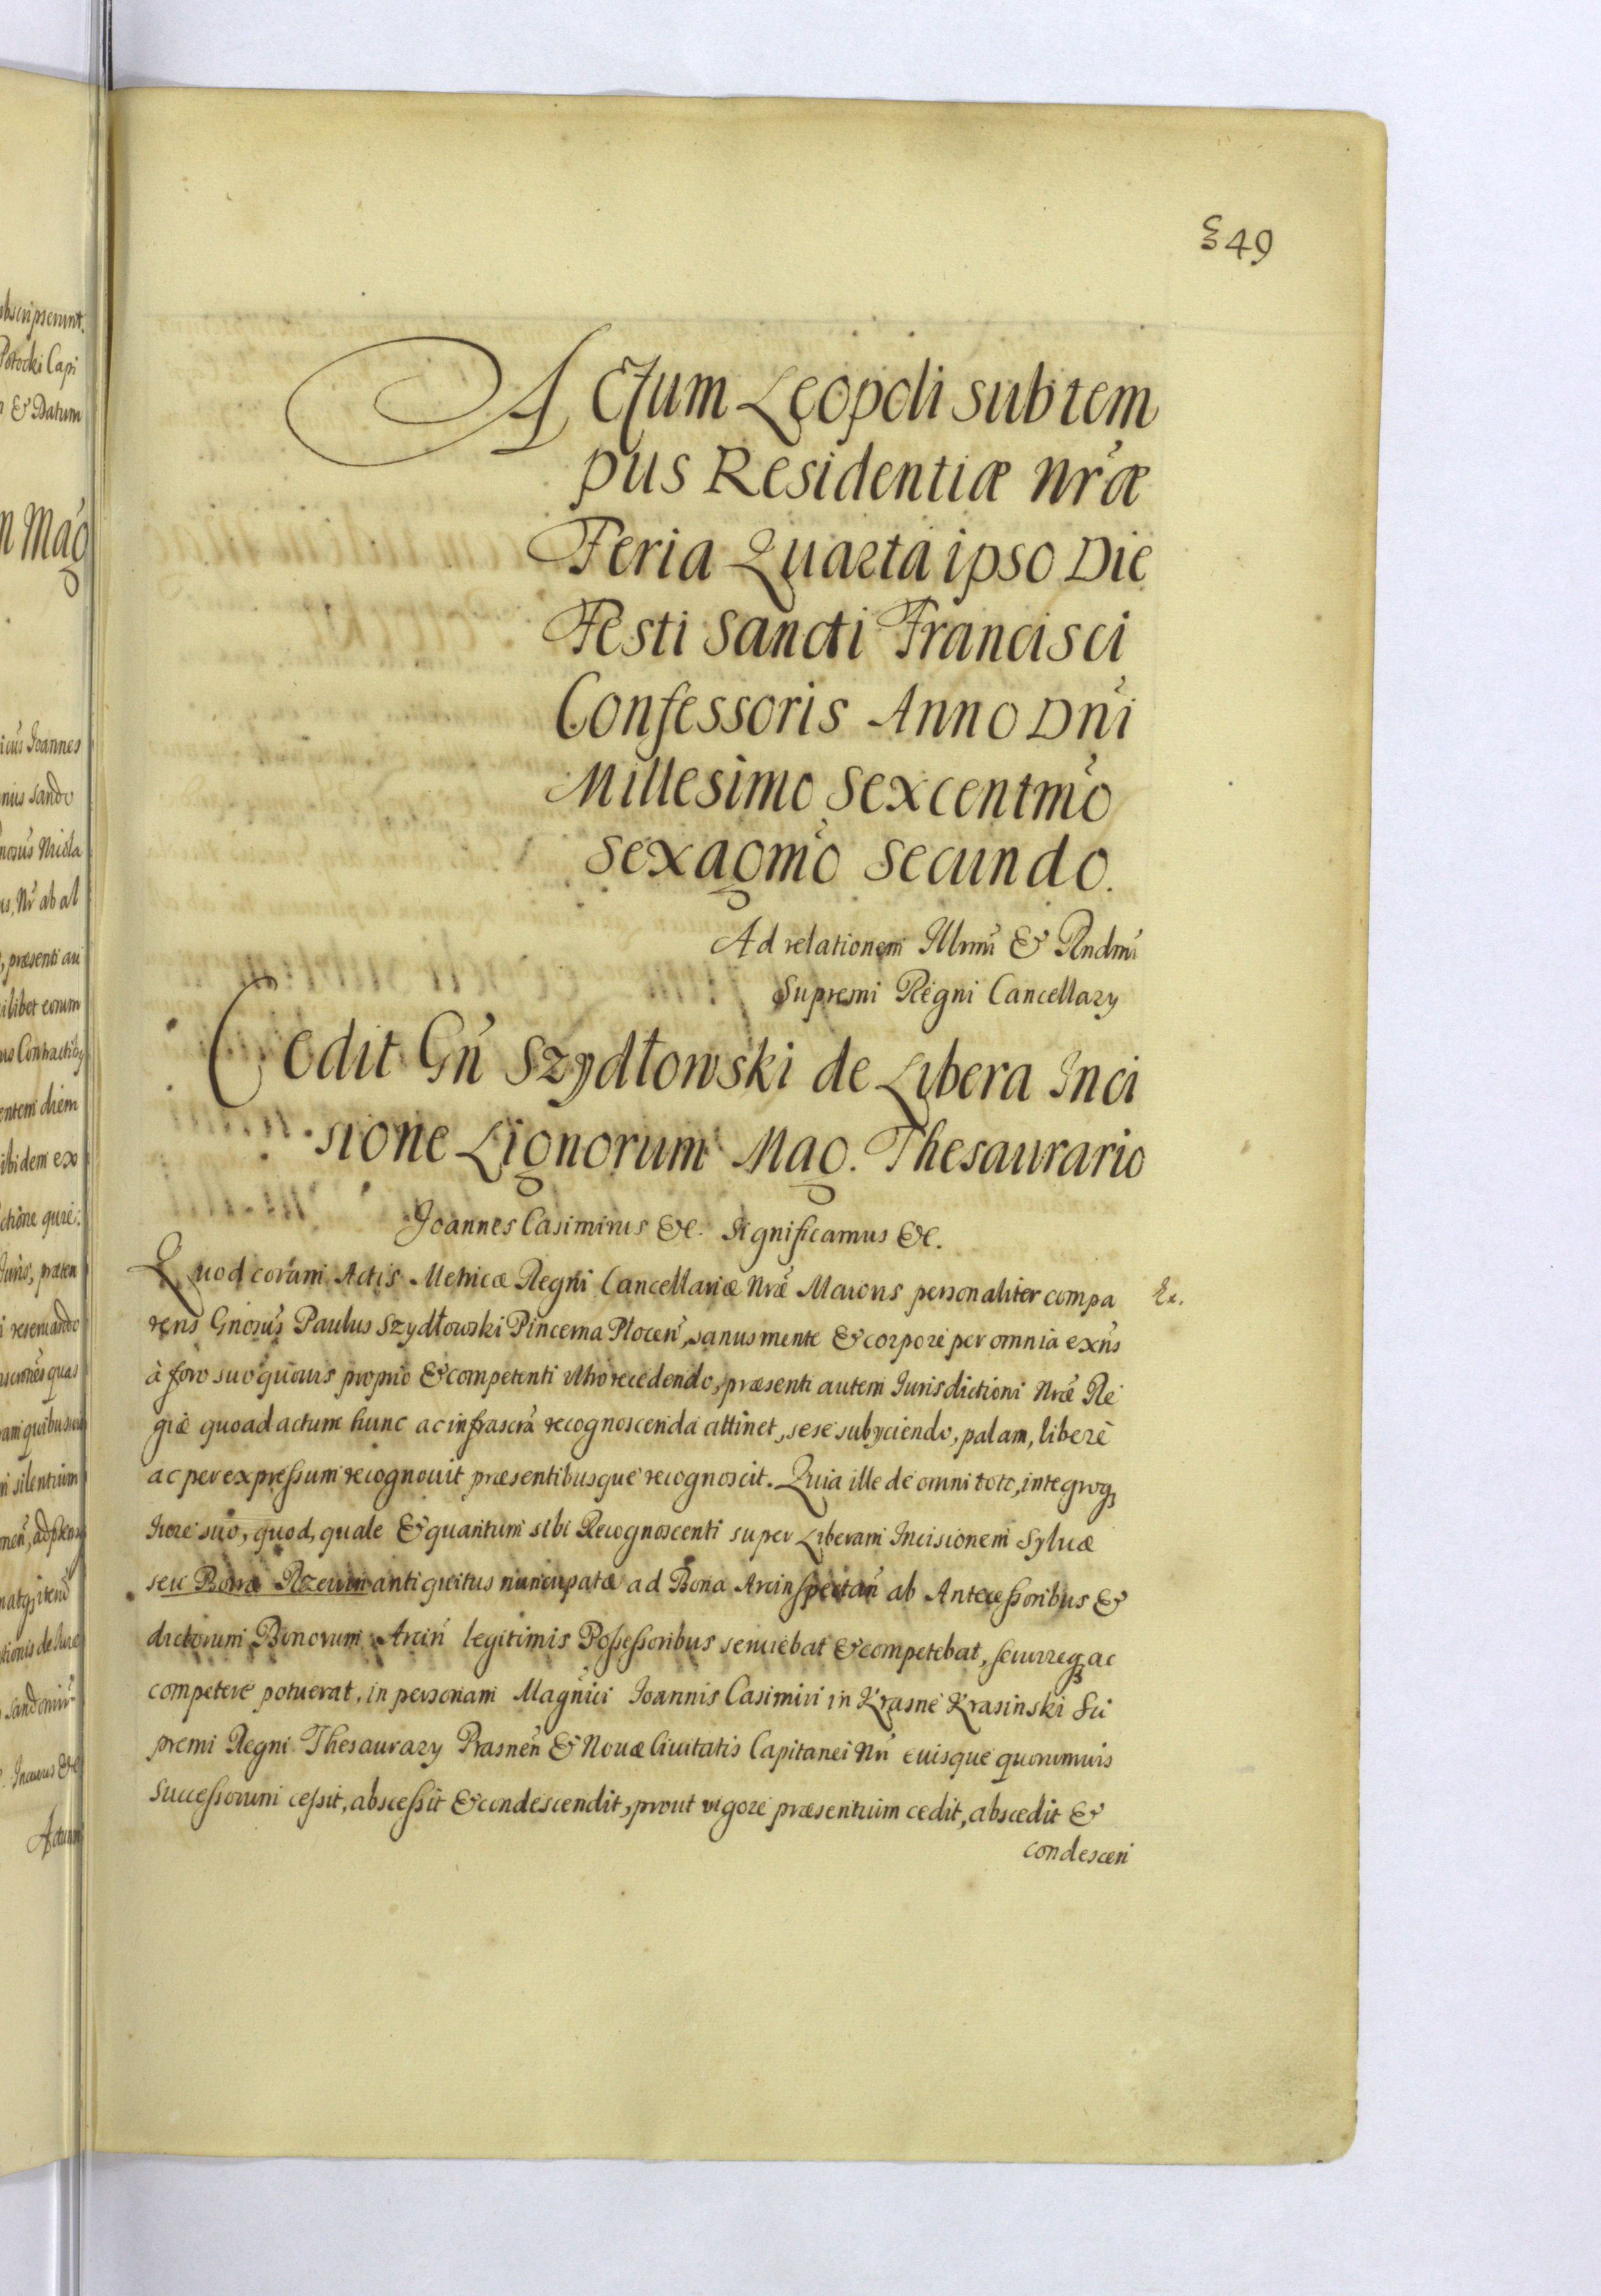 349
Actum Leopoli sub tem
pus Residentiæ Nræ
Feria Quarta ipso Die
Festi Sancti Francisci
Confessoris Anno Dni
Millesimo Sexcentmo
Sexagmo Secundo.
Ad relationem Illmi & Rndmi
Supremi Regni Cancellary
Cedit Gn Szydłowski de Libera Inci
sione Lignorum Mag. Thesaurario
Joannes Casimirus &c. Significamus &c.
Quod coram Actis Metricæ Regni Cancellariæ Nræ Maioris personaliter compa
Ex.
rens Gnosus Paulus Szydłowski Pincerna Płocen, sanus mente & corpore per omnia exns
à foro suo quovis proprio & competenti vltro recedendo, præsenti autem Iurisdictioni Nræ Re
giæ quoad actum hunc ac infrascra recognoscenda attinet, sese subyciendo, palam, liberè
ac per expressum recognouit præsentibusque recognoscit. Quia ille de omni toto, integroq
Iure suo, quod, quale & quantum sibi Recognoscenti super Liberam Incisionem Syluæ
seu antiquitus nuncupatæ ad Bona Arcin spectan ab Antecessoribus &
dictorum Bonorum Arcin legitimis Possessoribus seruiebat & competebat, seruireq ac
competere potuerat, in personam Magnici Joannis Casimiri in Krasne Krasinski Su
premi Regni Thesaurary Prasnen & Nouæ Ciuitatis Capitanei Nri euisque quorumuis
Successorum cessit, abscessit & condescendit, prout vigore præsentium cedit, abscedit &
condescen
bscripserunt.
Potocki Capi
& Datum
m Mag
icus Joannes
nosus Nicola
us, Nr ab al
, præsenti au
ilibet eorum
entem diem
ibidem ex
i reseruando
ni silentium
tionis de Iure
Actum